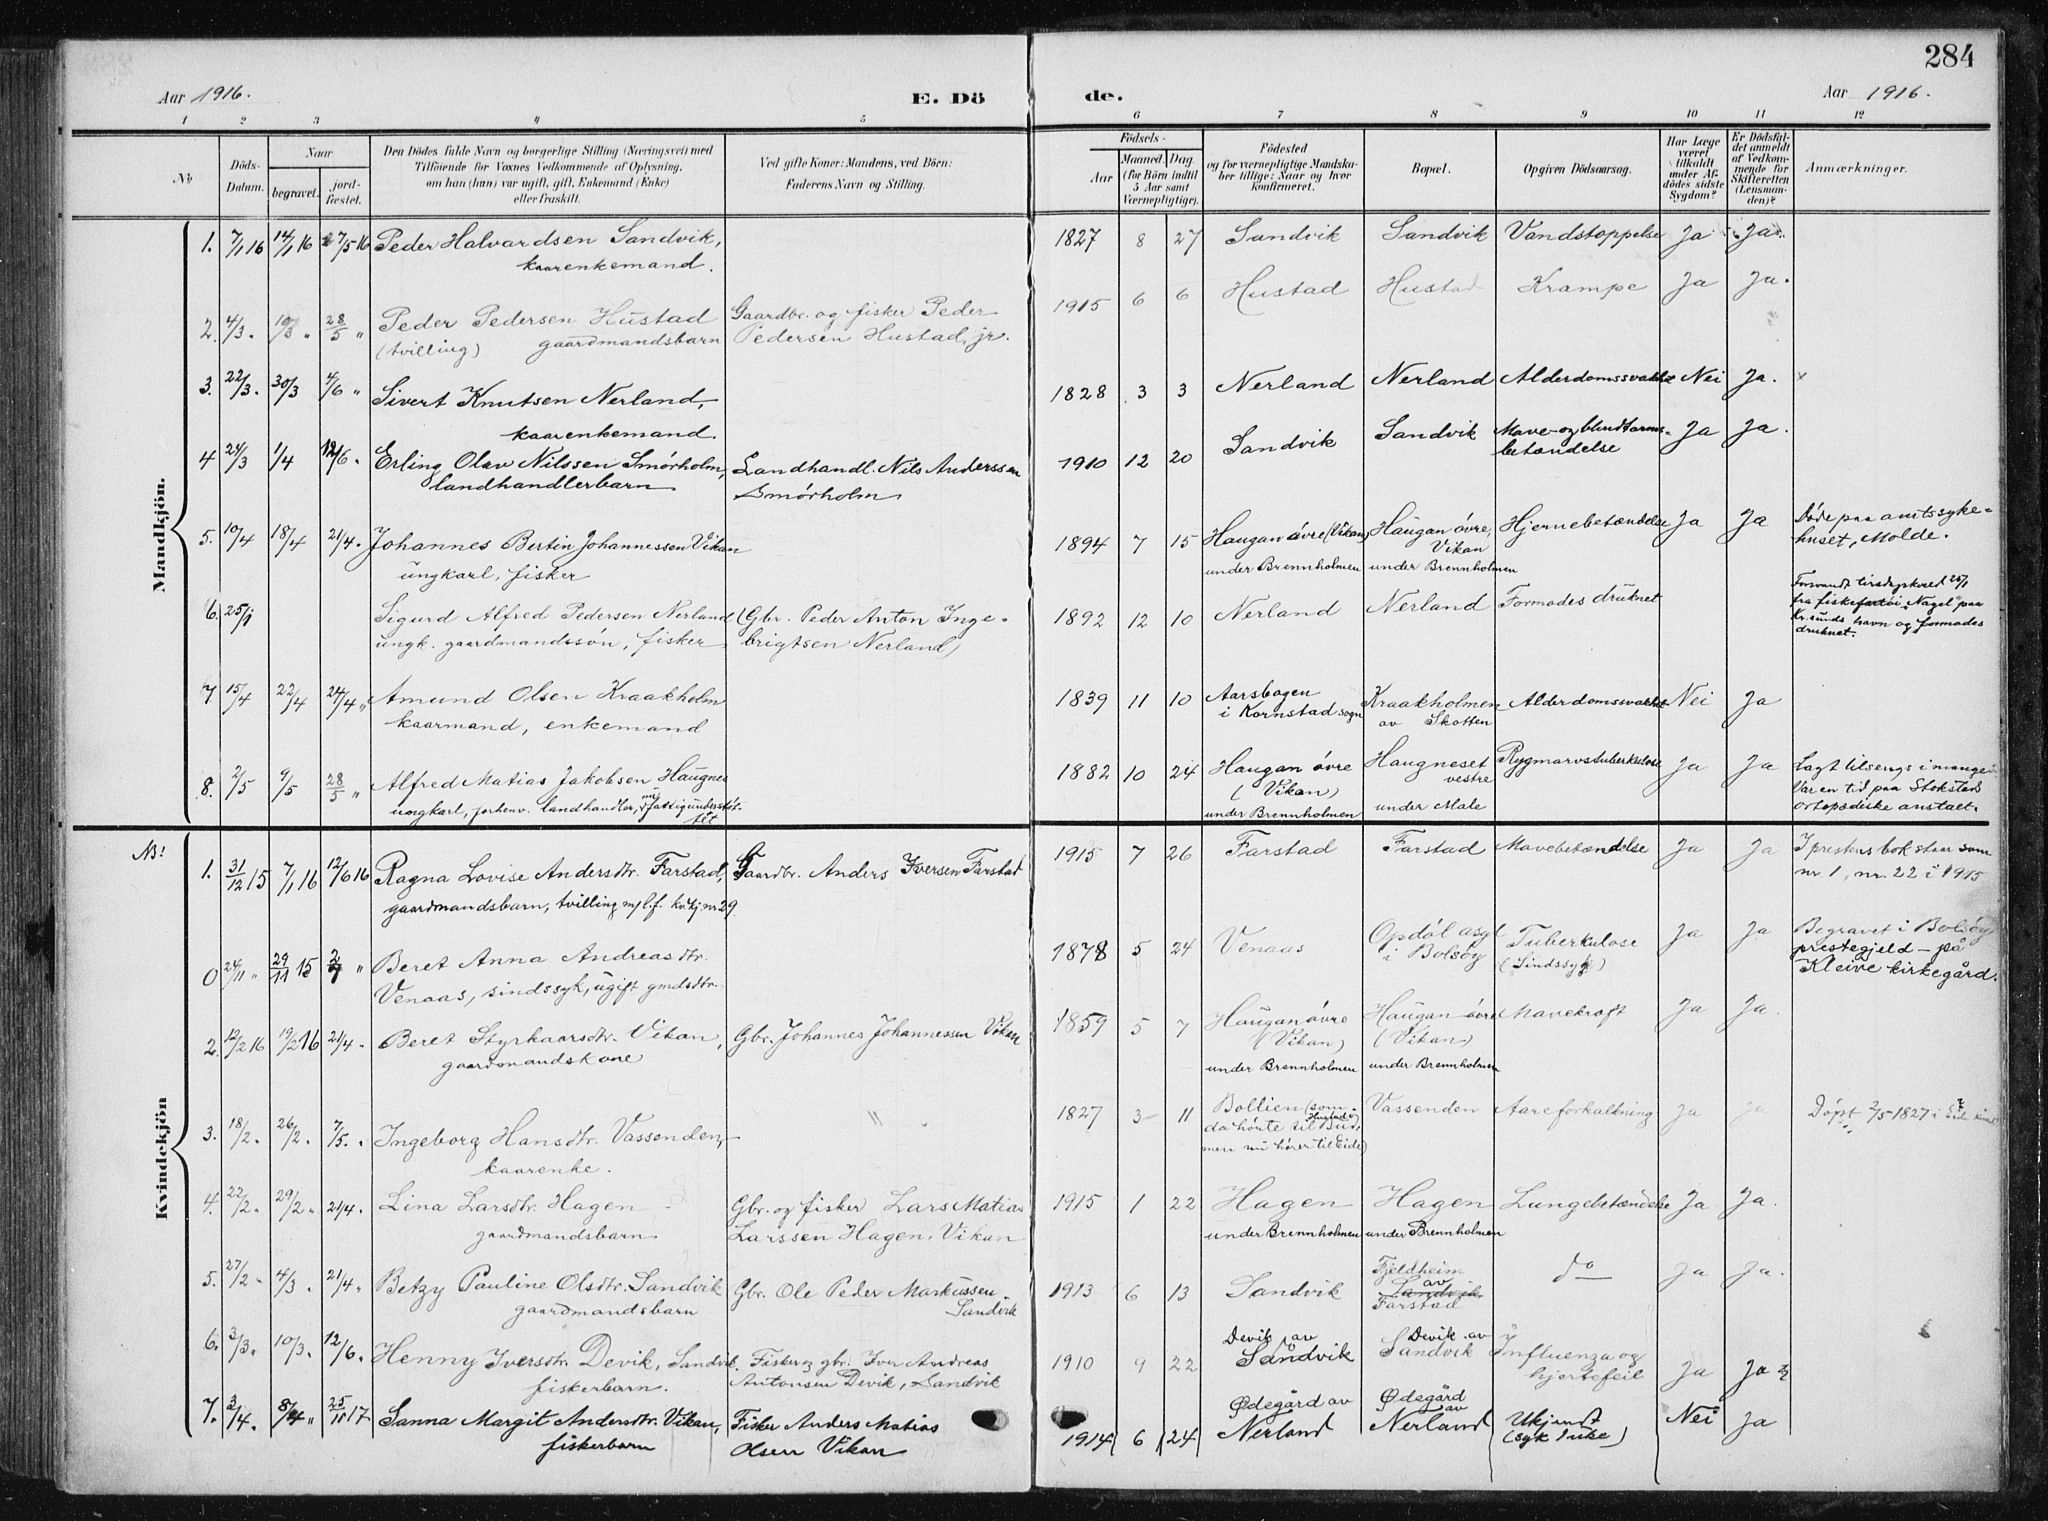 284
Aar 1916.
E. Dö de.
Aar 1916.
1 2 3 4 5 6 7 8 9 10 11 12
No
Döds-Datum.
Naar
begravet.
jord-fæstet.
Den Dödes fulde Navn og borgerlige Stilling (Næringsvei) med
Tilföiende for Voxnes Vedkommende af Oplysning,
om han (hun) var ugift, gift, Enkemand (Enke)
eller fraskilt.
Ved gifte Koner: Mandens, ved Börn:
Faderens Navn og Stilling.
Födsels-
Aar
Maaned. Dag.
(for Börn indtil
5 Aar samt
Værnepligtige).
Födested
og for værnepligtige Mandska-
ber tillige: Naar og hvor
konfirmeret.
Bopæl.
Opgiven Dödsaarsag.
Har Læge
været
tilkaldt
under Af-
dödes sidste
Sygdom?
Er Dödsfal-
det anmeldt
af Vedkom-
mende for
Skifteretten
(Lensman-
den)?
Anmærkninger.
Mandkjön.
1. 7/1 16 14/1 16 27/5 16 Peder Halvardsen Sandvik, 1827 8 27 Sandvik Sandvik Vandstoppelse Ja Ja.
kaarenkemand.
2. 4/3. 10/3 " 28/5 " Peder Pedersen Hustad Gaardbr. og fisker Peder 1915 6 6 Hustad Hustad Krampe Ja Ja.
(tvilling) gaardmandsbarn Pedersen Hustad, jr.
3. 22/3. 30/3 4/6 " Sivert Knutsen Nerland, 1828 3 3 Nerland Nerland Alderdomssvakhet Nei Ja.
kaarenkemand.
4 24/3 1/4 12/6. Erling Olav Nilssen Smørholm, Landhandl. Nils Anderssen 1910 12 20 Sandvik Sandvik Mave- og blindtarms- Ja Ja.
landhandlerbarn Smørholm betændelse
5. 10/4 18/4 21/4. Johannes Bertin Johannessen Vikan 1894 7 15 Haugan øvre (Vikan) Haugan øvre, Hjernebetændelse Ja Ja Døde paa amtssyke-
ungkarl, fisker under Brennholmen Vikan huset, Molde.
under Brennholmen
6. 25/1 Sigurd Alfred Pedersen Nerland (Gbr. Peder Anton Inge- 1892 12 10 Nerland Nerland Formodes druknet Forsvandt tirsdagskveld 25/1
ungk. gaardmandssøn, fisker brigtsen Nerland) fra fiskefartøi "Nagel" paa
Kr.sunds havn og formodes
druknet.
7. 15/4 22/4 24/4 " Amund Olsen Kraakholm 1839 11 10 Aarsbogen Kraakholmen Alderdomssvakhet Nei Ja
kaarmand, enkemand i Kornstad sogn av Skotten
8. 2/5 9/5 28/5 " Alfred Matias Jakobsen Haugnes 1882 10 24 Haugan øvre Haugneset Rygmarvstuberkulose Ja Ja Lagt tilsengs i mange
ungkarl, forhenv. landhandler, nu fattigunderstøt- (Vikan) vestre Var en tid paa Stoksteds
tet under Brennholmen under Male ortopædiske anstalt.
Kvindekjön
NB!
1. 31/12 15 7/1 16 12/6 16 Ragna Lovise Andersdtr. Farstad, Gaardbr. Anders Iversen Farstad 1915 7 26 Farstad Farstad Mavebetændelse Ja Ja I prestens bok staar som
gaardmandsbarn, tvilling m/l.f. kv.kj. nr 29 nr. 1, nr. 22 i 1915
0 24/11 " 29/11 15 2/7 " Beret Anna Andreasdtr. 1878 5 24 Venaas Opdøl asyl Tuberkulose Ja Ja Begravet i Bolsøy
Venaas, sindssyk, ugift gmdsdtr. i Bolsøy (Sindssyg) prestegjeld - på
Kleive kirkegård.
2. 12/2 16 19/2 16 21/4. Beret Styrkaarsdtr. Vikan, Gbr. Johannes Johannessen Vikan 1859 5 7 Haugan øvre Haugan øvre Mavekræft Ja Ja.
gaardmandskone (Vikan) (Vikan)
under Brennholmen under Brennholmen
3. 18/2. 26/2. 7/5. Ingeborg Hansdtr. Vassenden, " 1827 3 11 Bollien (som Vassenden Aareforkalkning Ja Ja Døpt 2/5 1827 i Eide kirke
kaarenke. da hørte til Hustad i Bud,
men nu hører til Eide)
4. 22/2. 29/2. 21/4. Lina Larsdtr. Hagen Gbr. og fisker Lars Matias 1915 1 22 Hagen Hagen Lungebetændelse Ja Ja.
gaardmandsbarn Larssen Hagen, Vikan under Brennholmen under Brennholmen
5. 27/2 4/3. 21/4. Betzy Pauline Olsdtr. Sandvik Gbr. Ole Peder Markussen 1913 6 13 Sandvik Fjeldheim do Ja Ja.
gaardmandsbarn Sandvik av
Sandvik
Farstad
6. 3/3. 10/3. 12/6. Henny Iversdtr. Devik, Sandvik. Fisker og gbr. Iver Andreas 1910 9 22 Devik av Devik av Influenza og Ja Ja
fiskerbarn. Antonsen Devik, Sandvik Sandvik Sandvik hjertefeil
7. 3/4. 8/4 " 25/11 17 Sanna Margit Andersdtr. Vikan, Fisker Anders Matias 1914 6 24 Ødegård av Ødegård av Ukjendt Nei Ja
fiskerbarn Olsen Vikan Nerland Nerland (syk 1 uke)